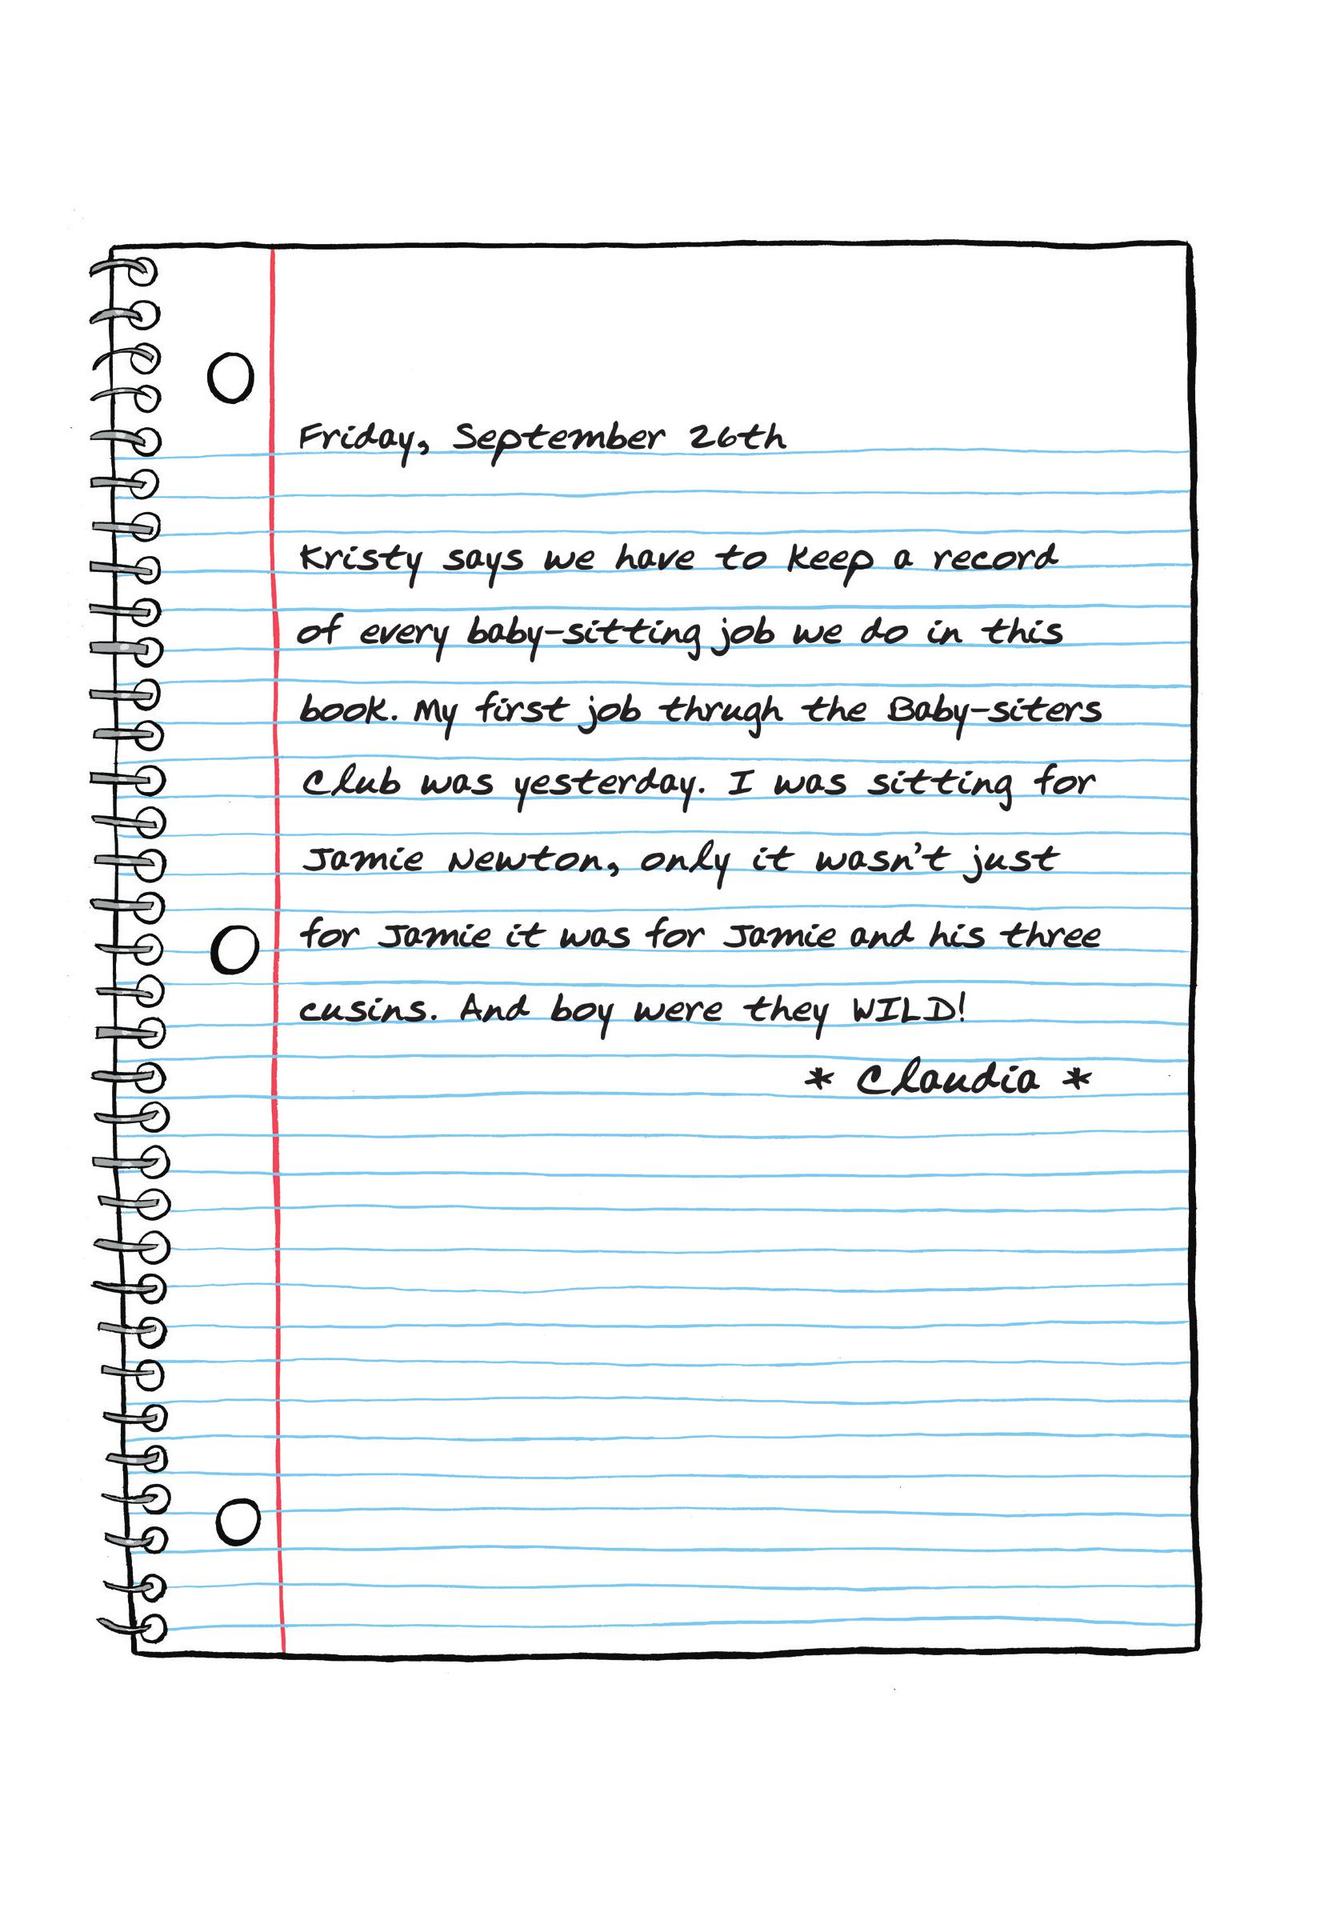 Friday, September 26th
Kristy says we have to keep a record
of every baby-sitting job we do in this
book. My first job thrugh the Baby-siters
Club was yesterday. I was sitting for
Jamie Newton, only it wasn't just
for Jamie it was for Jamie and his three
cusins. And boy were they WILD!
* Claudia *